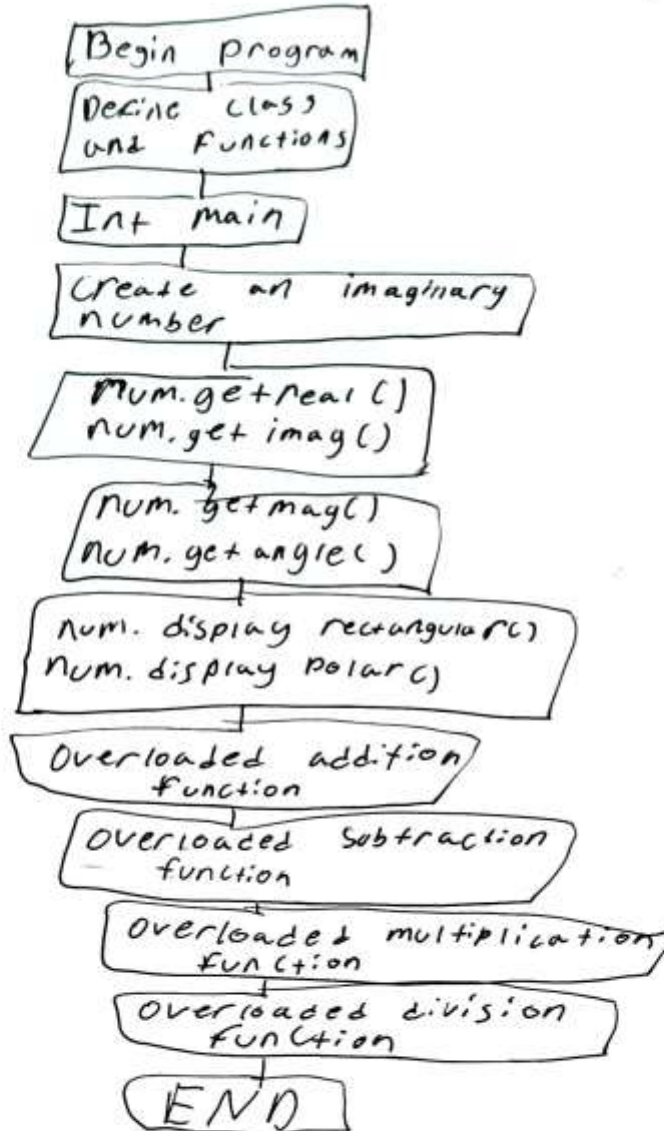 Begin program
Define class
and functions
Int main
Create an imaginary
number
num.getreal()
num.get imag()
num. getmag()
num. getangle()
num. display rectangular()
num. display polar()
Overloaded addition
function
Overloaded subtraction
function
Overloaded multiplication
function
Overloaded division
function
END